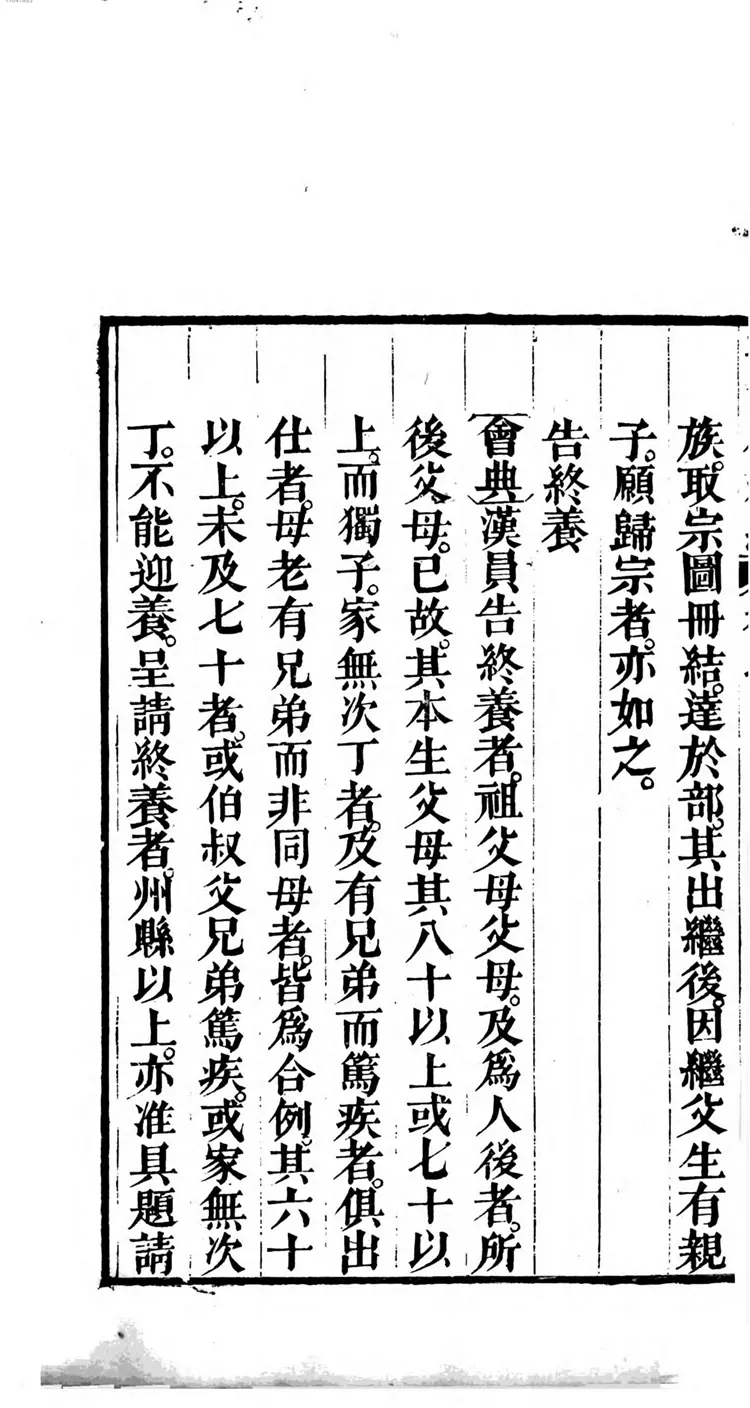 族。取宗圖冊結。達於部。其出繼後。因繼父生有親
子。願歸宗者。亦如之。
告終養
會典漢員告終養者。祖父母父母。及爲人後者。所
後父母。已故。其本生父母其八十以上或七十以
上。而獨子。家無次丁者。及有兄弟而篤疾者。俱出
仕者。母老有兄弟而非同母者。皆爲合例。其六十
以上。未及七十者。或伯叔父兄弟篤疾。或家無次
丁。不能迎養。呈請終養者。州縣以上。亦准具題請